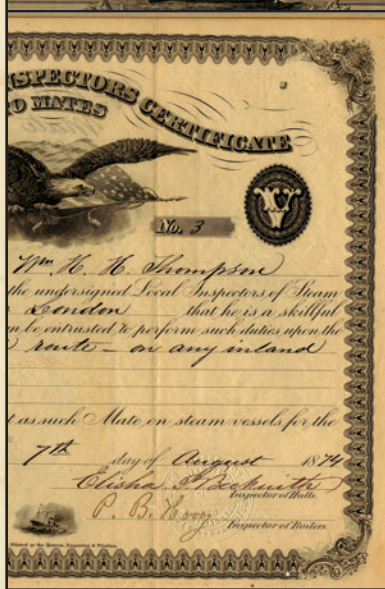 INSPECTORS CERTIFICATE
TO MATES
No. 3
Wm. H. H. Thompson
the undersigned Local Inspectors of Steam
London that he is a skillful
n be entrusted to perform such duties upon the
route – on any inland
t as such Mate on steam vessels for the
7th day of August 1874
Elisha P. Beckwith
Inspector of Hulls.
P. B.
Inspector of Boilers.
Printed at the Bureau, Engraving & Printing.